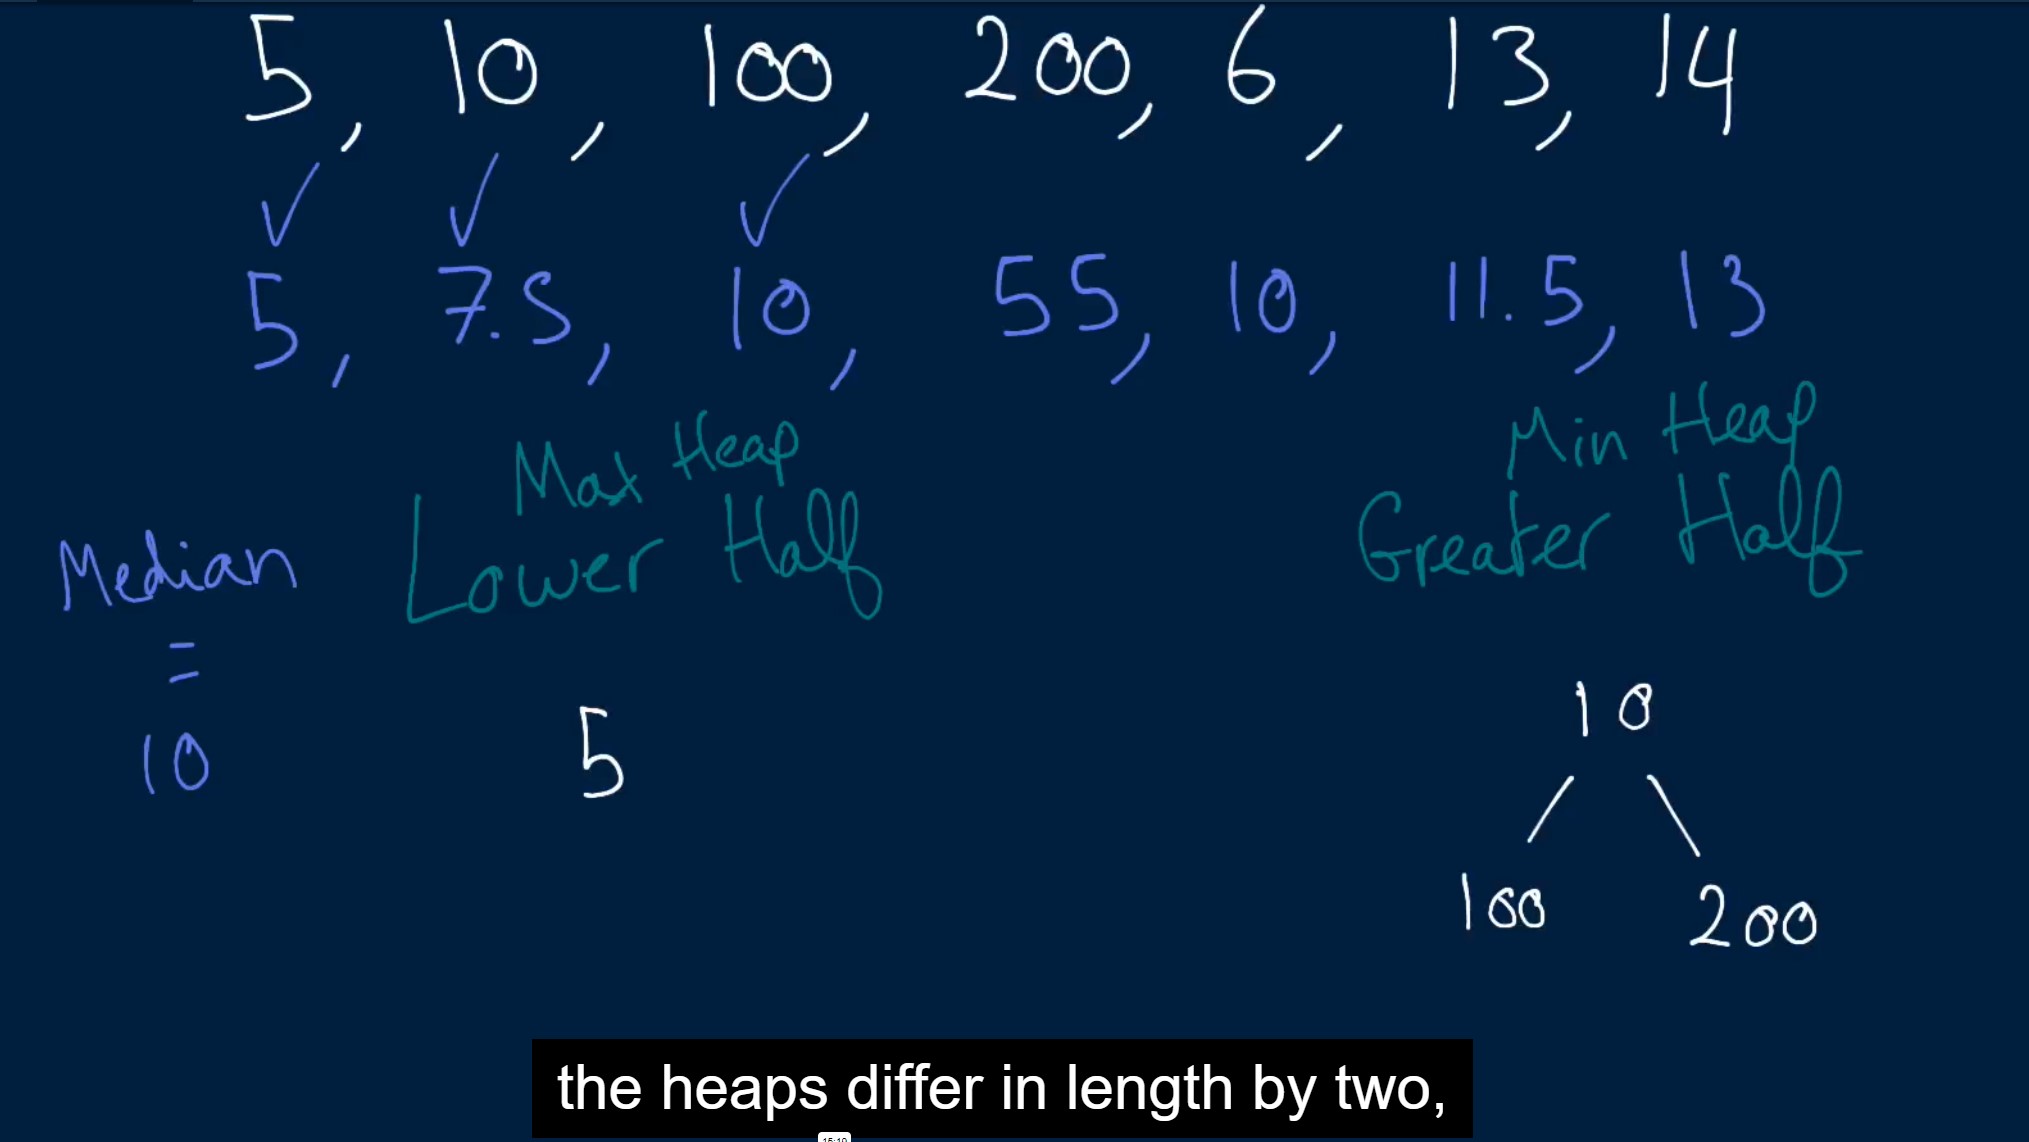 5, 10, 100, 200, 6, 13, 14
5, 7.5, 10, 55, 10, 11.5, 13
Max Heap
Min Heap
Lower Half
Greater Half
Median
=
10
5
10
100
200
the heaps differ in length by two,
15:19